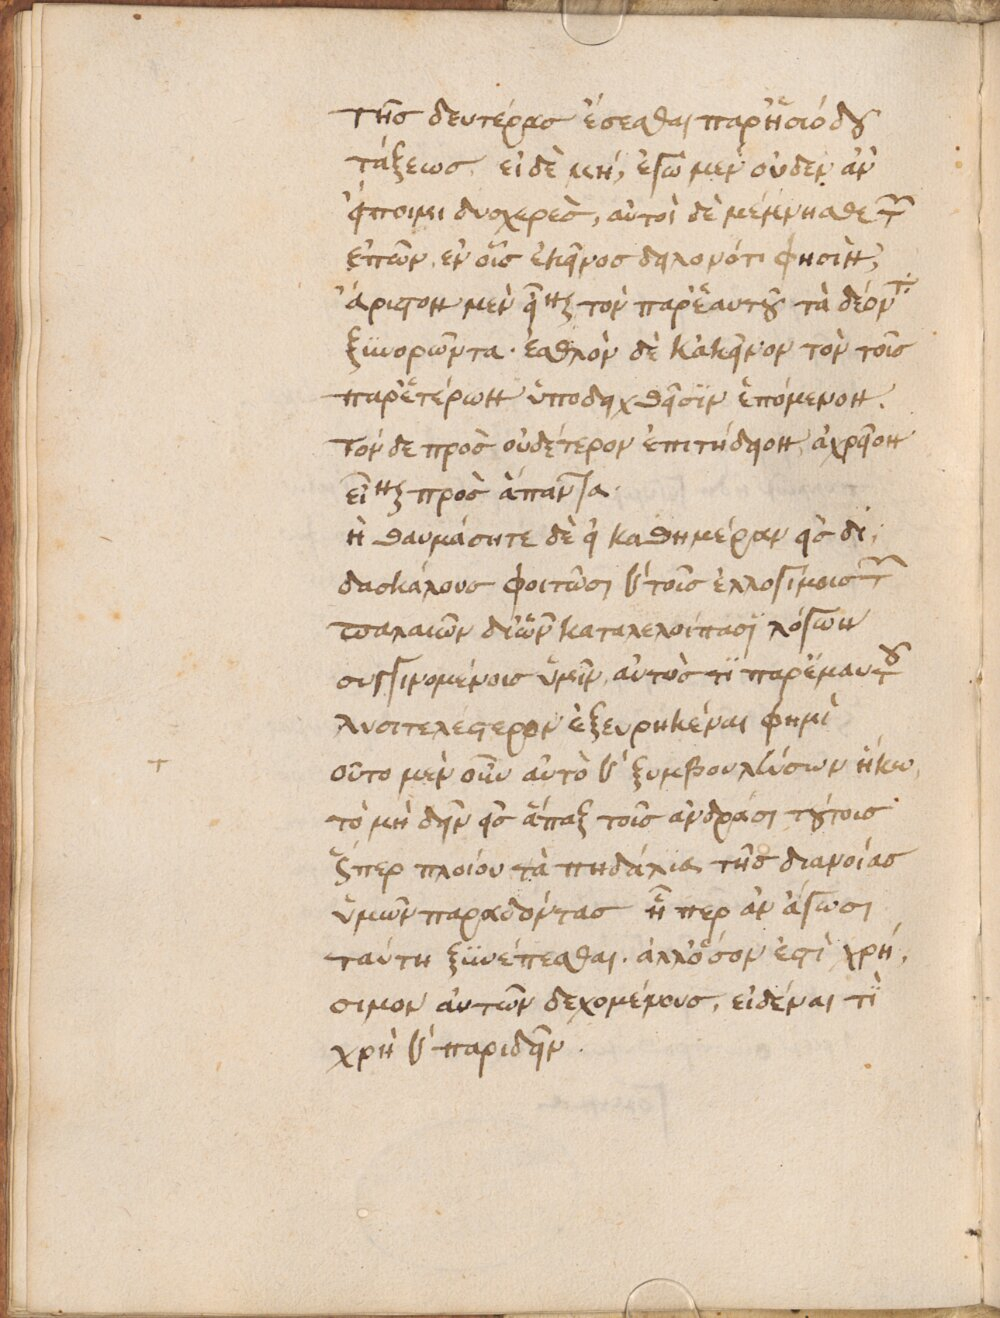 τῆς δευτέρας ἔσεσθαι παρ' ἡσιόδου
τάξεως. εἰ δὲ μή, ἐγὼ μὲν οὐδὲν ἂν
εἴποιμι δυσχερὲς, αὐτοὶ δὲ μέμνησθε τῶν
ἐπῶν. ἐν οἷς ἐκεῖνος δηλονότι φησὶν,
ἄριστον μὲν εἶναι τὸν παρ' ἑαυτοῦ τὰ δέοντα
ξϋνορῶντα. ἐσθλὸν δὲ κἀκεῖνον τὸν τοῖς
παρ' ἑτέρων ὑποδειχθεῖσϊν ἑπόμενον.
τὸν δὲ πρὸς οὐδέτερον ἐπιτήδειον, ἀχρεῖον
εἶναι πρὸς ἅπαντα.
μὴ θαυμάσητε δὲ εἰ καθημέραν εἰς δι,
δασκάλους φοιτῶσι καὶ τοῖς ἐλλογίμοις τῶν
παλαιῶν δι' ὧν καταλελοίπασϊ λόγων
συγγινομένοις ὑμῖν, αὐτός τϊ παρ' ἐμαυτοῦ
λυσιτελέστερον ἐξευρηκέναι φημὶ
τοῦτο μὲν οὖν αὐτὸ καὶ ξυμβουλεύσων ἥκω,
τὸ μὴ δεῖν εἰς ἅπαξ τοῖς ἀνδράσι τούτοις
ὥσπερ πλοίου τὰ πηδάλια τῆς διανοίας
ὑμῶν παραδόντας ᾗπερ ἂν ἄγωσι
ταύτῃ ξϋνέπεσθαι. ἀλλ' ὅσον ἐστὶ χρή,
σιμον αὐτῶν δεχομένους, εἰδέναι τϊ
χρὴ καὶ παριδεῖν.